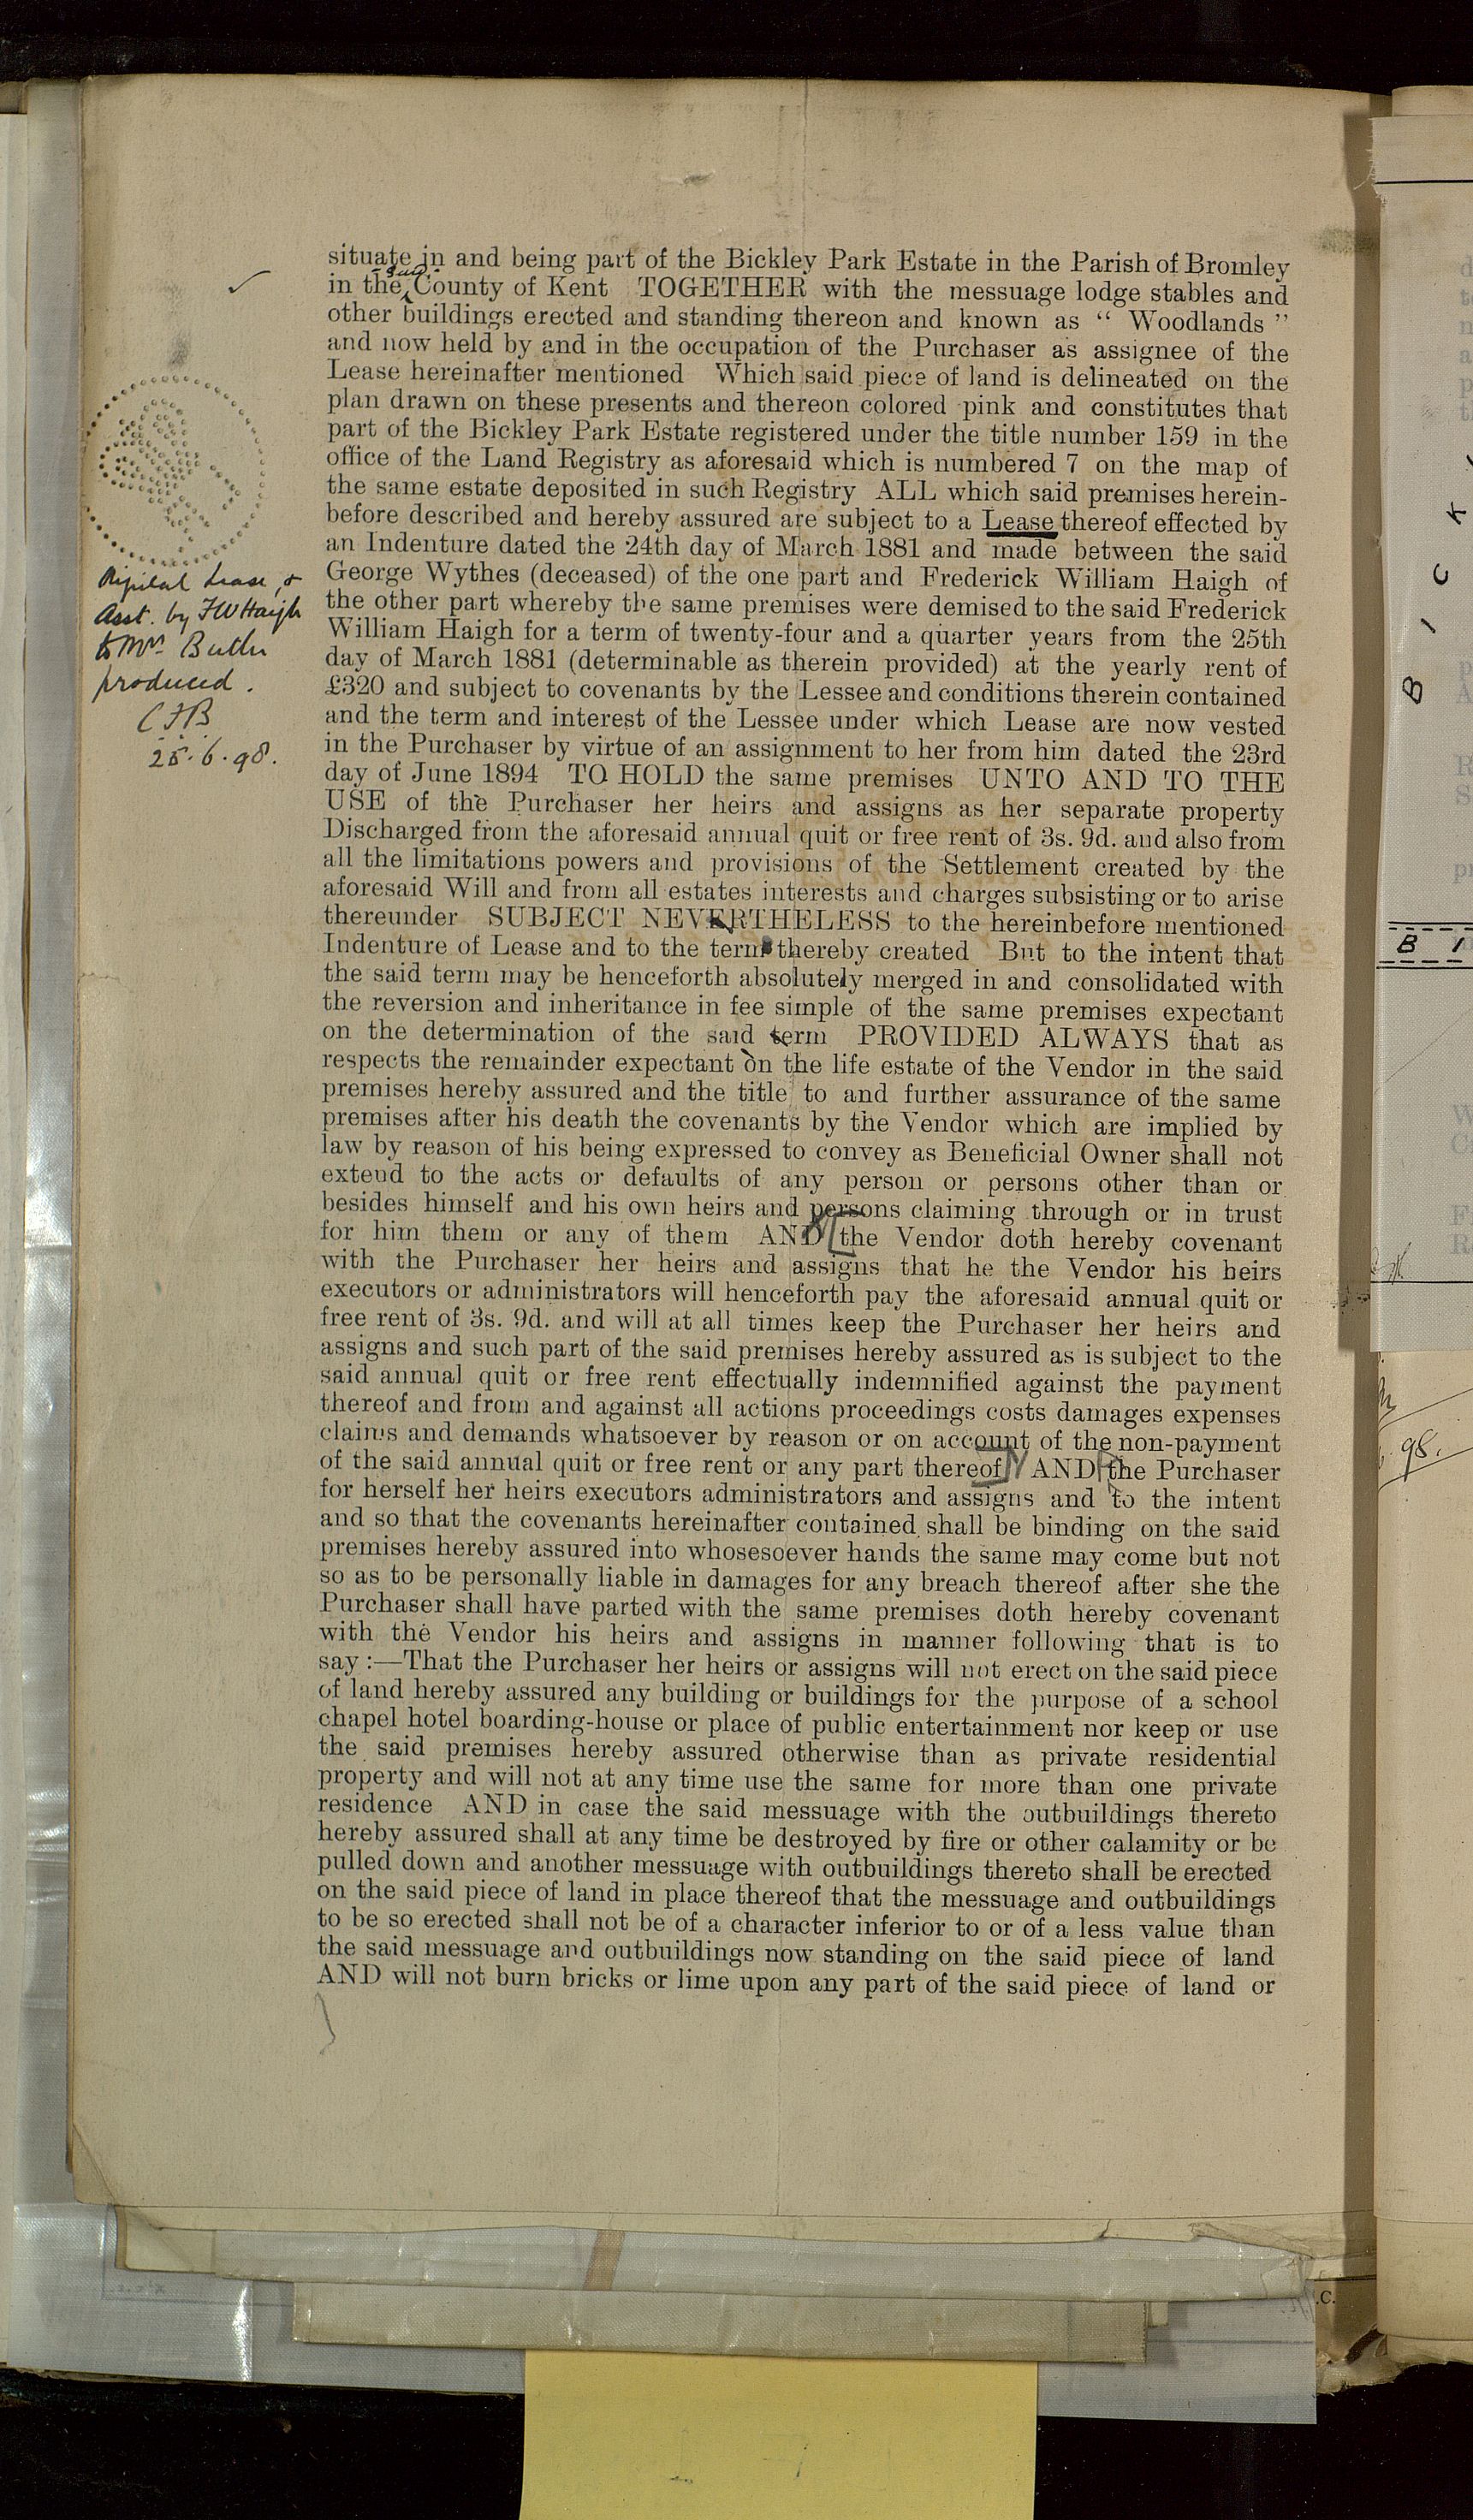 situate in and being part of the Bickley Park Estate in the Parish of Bromley
said
in the County of Kent TOGETHER with the messuage lodge stables and
other buildings erected and standing thereon and known as “ Woodlands ”
and now held by and in the occupation of the Purchaser as assignee of the
Lease hereinafter mentioned Which said piece of land is delineated on the
plan drawn on these presents and thereon colored pink and constitutes that
part of the Bickley Park Estate registered under the title number 159 in the
office of the Land Registry as aforesaid which is numbered 7 on the map of
the same estate deposited in such Registry ALL which said premises herein-
before described and hereby assured are subject to a Lease thereof effected by
an Indenture dated the 24th day of March 1881 and made between the said
George Wythes (deceased) of the one part and Frederick William Haigh of
the other part whereby the same premises were demised to the said Frederick
William Haigh for a term of twenty-four and a quarter years from the 25th
day of March 1881 (determinable as therein provided) at the yearly rent of
£320 and subject to covenants by the Lessee and conditions therein contained
and the term and interest of the Lessee under which Lease are now vested
in the Purchaser by virtue of an assignment to her from him dated the 23rd
day of June 1894 TO HOLD the same premises UNTO AND TO THE
USE of the Purchaser her heirs and assigns as her separate property
Discharged from the aforesaid annual quit or free rent of 3s. 9d. and also from
all the limitations powers and provisions of the Settlement created by the
aforesaid Will and from all estates interests and charges subsisting or to arise
thereunder SUBJECT NEVERTHELESS to the hereinbefore mentioned
Indenture of Lease and to the term thereby created But to the intent that
the said term may be henceforth absolutely merged in and consolidated with
the reversion and inheritance in fee simple of the same premises expectant
on the determination of the said term PROVIDED ALWAYS that as
respects the remainder expectant on the life estate of the Vendor in the said
premises hereby assured and the title to and further assurance of the same
premises after his death the covenants by the Vendor which are implied by
law by reason of his being expressed to convey as Beneficial Owner shall not
extend to the acts or defaults of any person or persons other than or
besides himself and his own heirs and persons claiming through or in trust
for him them or any of them AND [the Vendor doth hereby covenant
with the Purchaser her heirs and assigns that he the Vendor his heirs
executors or administrators will henceforth pay the aforesaid annual quit or
free rent of 3s. 9d. and will at all times keep the Purchaser her heirs and
assigns and such part of the said premises hereby assured as is subject to the
said annual quit or free rent effectually indemnified against the payment
thereof and from and against all actions proceedings costs damages expenses
claims and demands whatsoever by reason or on account of the non-payment
of the said annual quit or free rent or any part thereof] AND the Purchaser
for herself her heirs executors administrators and assigns and to the intent
and so that the covenants hereinafter contained shall be binding on the said
premises hereby assured into whosesoever hands the same may come but not
so as to be personally liable in damages for any breach thereof after she the
Purchaser shall have parted with the same premises doth hereby covenant
with the Vendor his heirs and assigns in manner following that is to
say :—That the Purchaser her heirs or assigns will not erect on the said piece
of land hereby assured any building or buildings for the purpose of a school
chapel hotel boarding-house or place of public entertainment nor keep or use
the said premises hereby assured otherwise than as private residential
property and will not at any time use the same for more than one private
residence AND in case the said messuage with the outbuildings thereto
hereby assured shall at any time be destroyed by fire or other calamity or be
pulled down and another messuage with outbuildings thereto shall be erected
on the said piece of land in place thereof that the messuage and outbuildings
to be so erected shall not be of a character inferior to or of a less value than
the said messuage and outbuildings now standing on the said piece of land
AND will not burn bricks or lime upon any part of the said piece of land or
Original Lease, &
Asst. by FWHaigh
to Mrs Butler
produced.
CFB
25.6.98.
B I C K
B I
98.
.C.